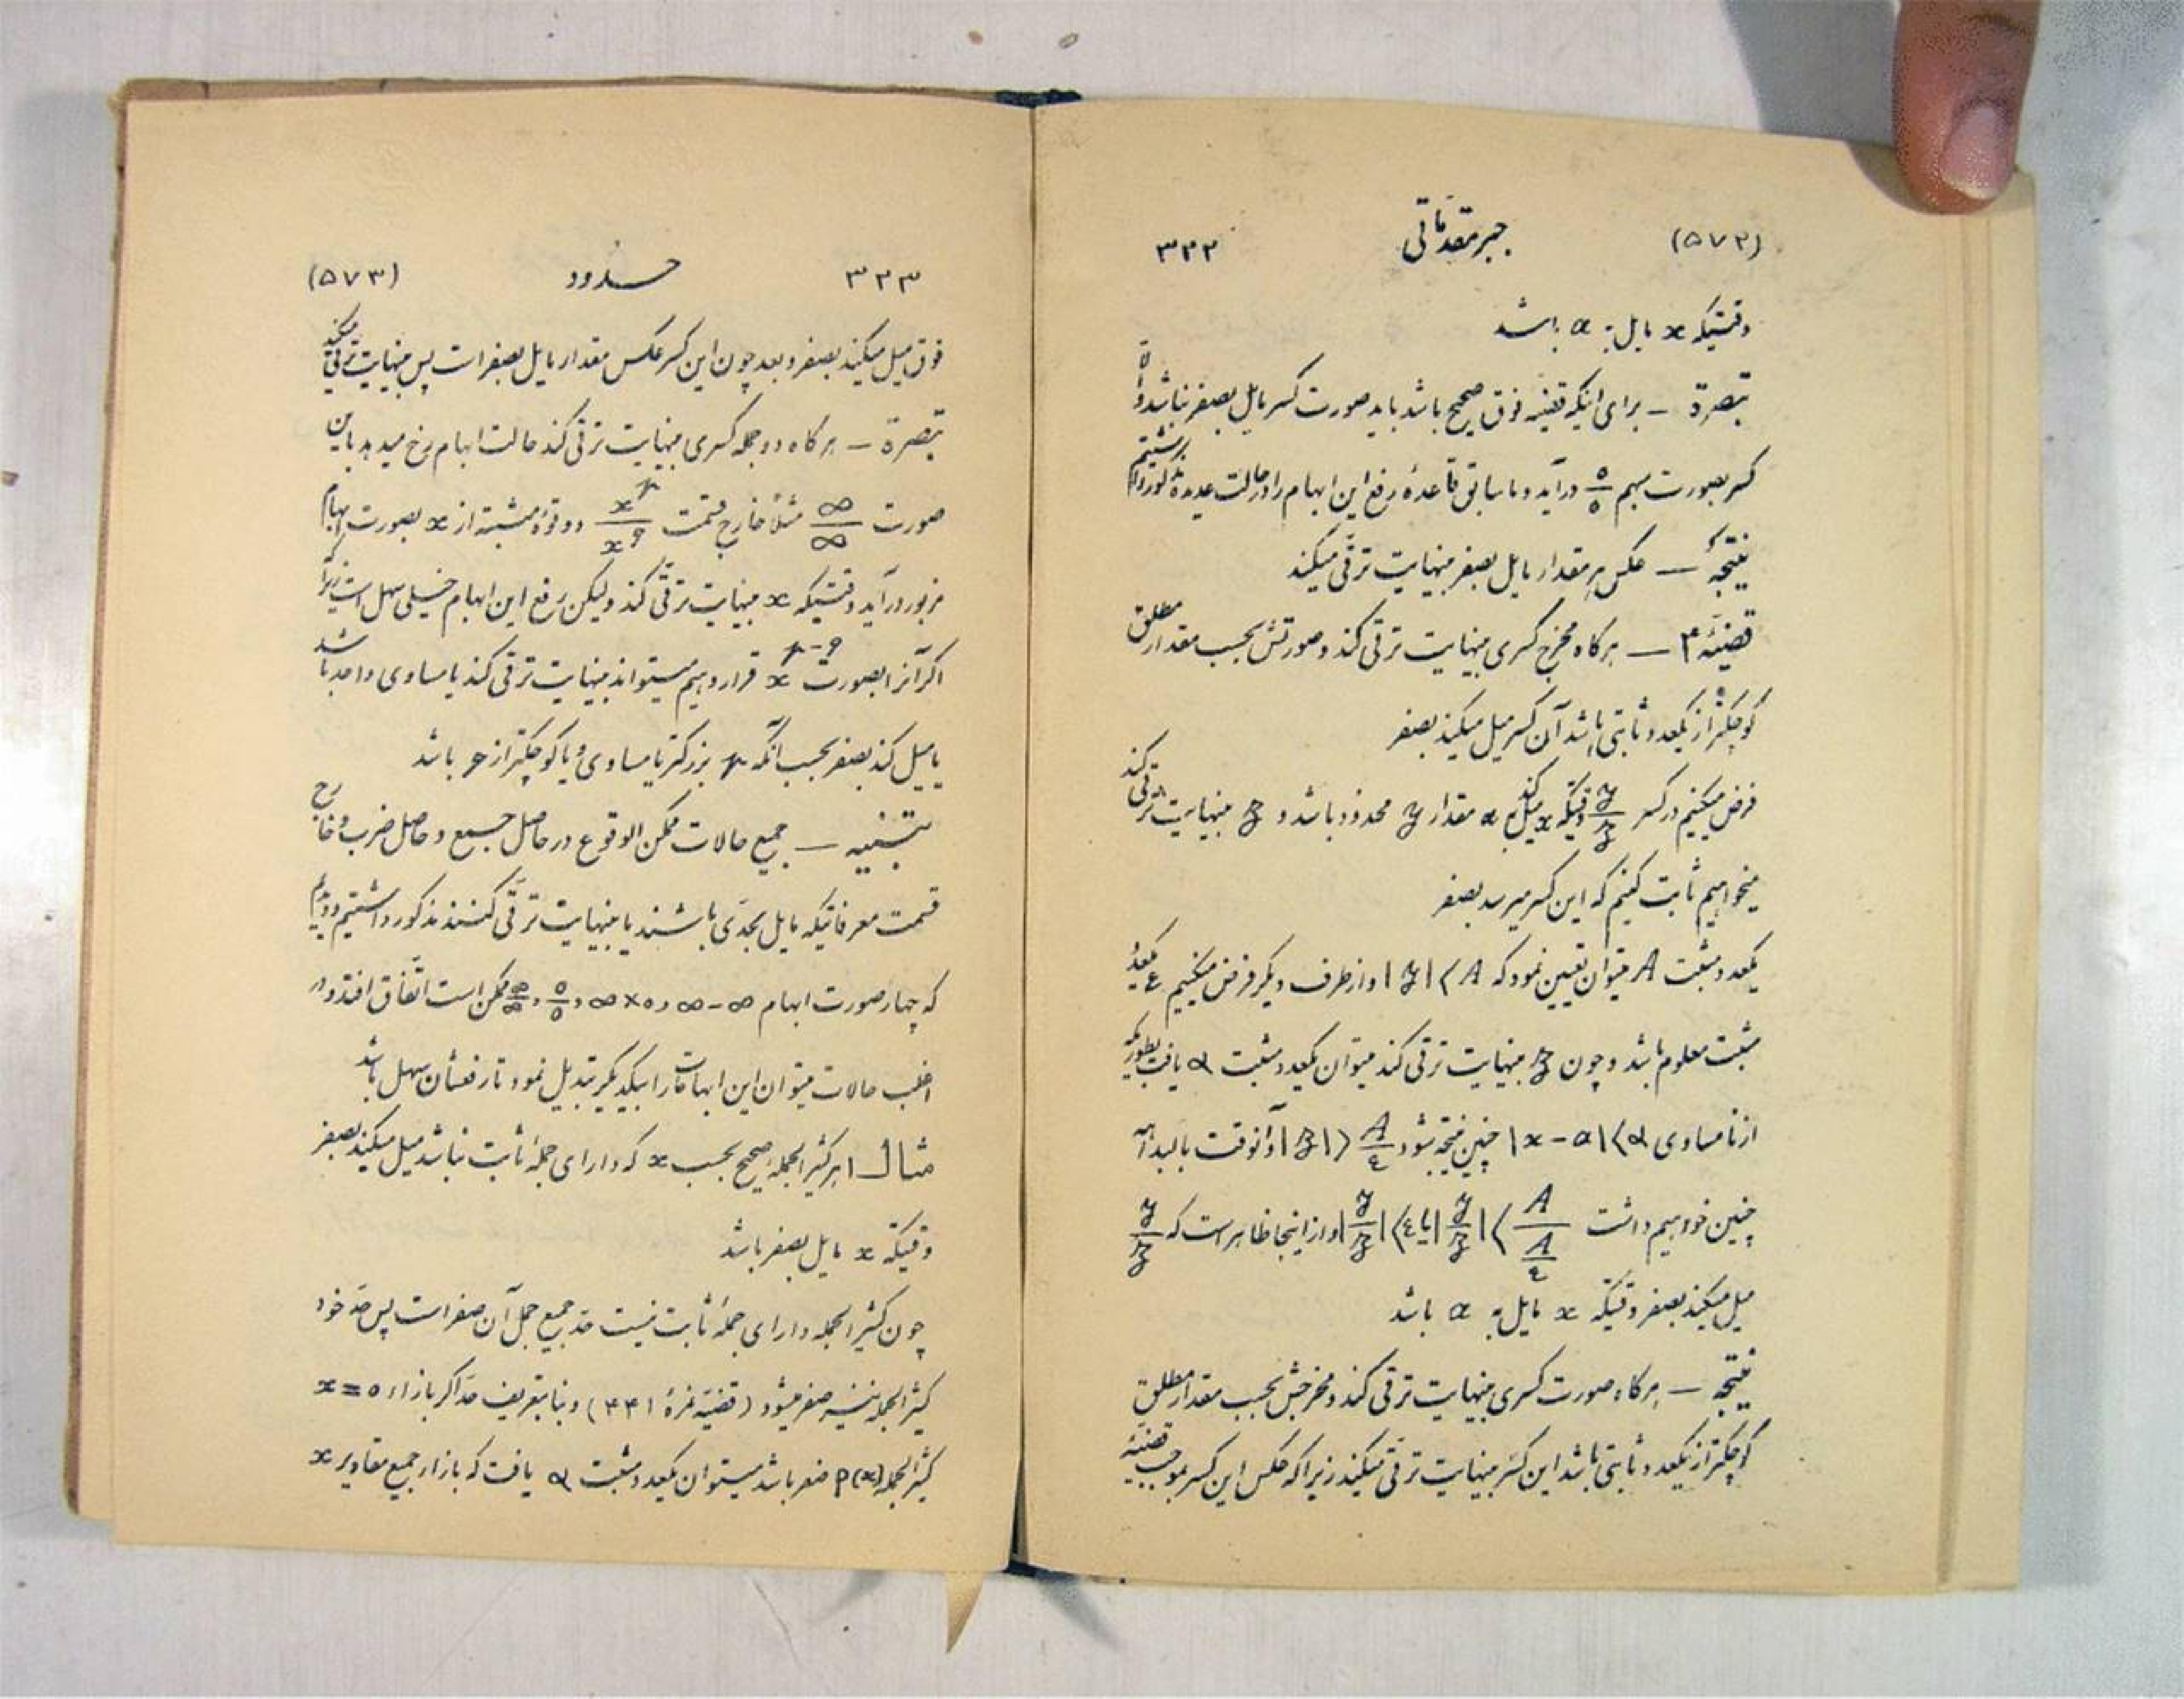 (۵۷۲) جبر مقدماتی ۳۳۲
وقتیکه x مایل به a باشد
تبصرة — برای اینکه قضیه فوق صحیح باشد باید صورت کسر مایل بصفر نباشد والّا
کسر بصورت مبهم 0/0 درآید و ما سابق قاعدهٔ رفع این ابهام را در حالت عدیده مذکور داشتیم
نتیجه — عکس هر مقدار مایل بصفر بینهایت ترقّی میکند
قضیّه ۳ — هرگاه مخرج کسری بینهایت ترقی کند و صورتش بحسب مقدار مطلق
کوچکتر از یکعدد ثابتی باشد آن کسر میل میکند بصفر
فرض میکنیم در کسر y/z وقتیکه x میل کند به a مقدار y محدود باشد و z بینهایت ترقی کند
میخواهیم ثابت کنیم که این کسر میرسد بصفر
یکعدد مثبت A میتوان تعیین نمود که |y| < A و از طرف دیگر فرض میکنیم ε یکعدد
مثبت معلوم باشد و چون z بینهایت ترقی کند میتوان یکعدد مثبت α یافت بطوریکه
از نامساوی |x − a| < α چنین نتیجه شود |z| > A/ε و آنوقت بالبداهه
چنین خواهیم داشت |y/z| < A/(A/ε) یا |y/z| < ε و از اینجا ظاهر است که y/z
میل میکند بصفر وقتیکه x مایل به a باشد
نتیجه — هرگاه صورت کسری بینهایت ترقی کند و مخرجش بحسب مقدار مطلق
کوچکتر از یکعدد ثابتی باشد این کسر بینهایت ترقّی میکند زیرا که عکس این کسر بموجب قضیّه
۳۳۳ حدود (۵۷۳)
فوق میل میکند بصفر و بعد چون این کسر عکس مقدار مایل بصفر است پس بینهایت ترقی میکند
تبصرة — هرگاه دو جمله کسری بینهایت ترقی کند حالت ابهام رخ میدهد باین
صورت ∞/∞ مثلاً خارج قسمت x^p/x^q دو قوّه مثبته از x بصورت ابهام
مزبور درآید وقتیکه x بینهایت ترقّی کند ولیکن رفع این ابهام خیلی سهل است زیرا که
اگر آنرا بصورت x^p−q قرار دهیم میتواند بینهایت ترقی کند یا مساوی واحد باشد
یا میل کند بصفر بحسب آنکه p بزرگتر یا مساوی و یا کوچکتر از q باشد
تنبیه — جمیع حالات ممکن الوقوع در حاصل جمع و حاصل ضرب و خارج
قسمت معرفاتیکه مایل بحدّی باشند یا بینهایت ترقّی کنند مذکور داشتیم و دیدیم
که چهار صورت ابهام ∞−∞ و ∞×0 و 0/0 و ∞/∞ ممکن است اتّفاق افتد و در
اغلب حالات میتوان این ابهامات را بیکدیگر تبدیل نمود تا رفعشان سهل باشد
مثال ۱ هر کثیر الجمله صحیح بحسب x که دارای جملهٔ ثابت نباشد میل میکند بصفر
وقتیکه x مایل بصفر باشد
چون کثیر الجمله دارای جملهٔ ثابت نیست حد جمیع جمل آن صفر است پس حدّ خود
کثیر الجمله نیز صفر میشود (قضیّه نمرهٔ ۴۴۱) و بنا بتعریف حدّ اگر بازاء x=0
کثیر الجمله P(x) صفر باشد میتوان یکعدد مثبت α یافت که بازاء جمیع مقادیر x